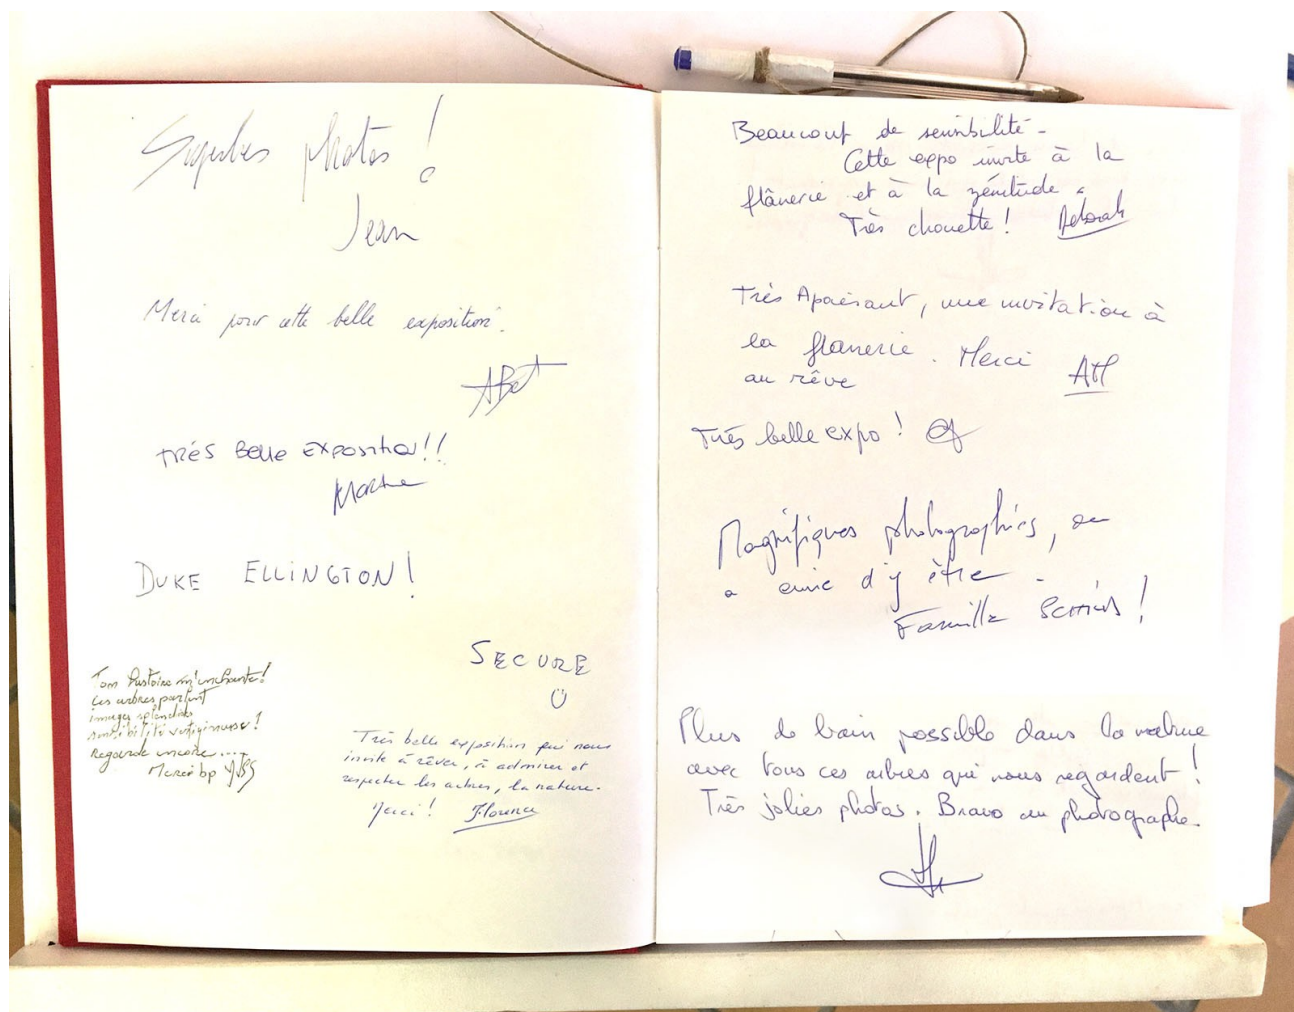 Superbes photos !
Jean
Merci pour cette belle exposition.
ABet
TRÉS BELLE EXPOSITION!!
Martine
DUKE ELLINGTON !
SECURE
Ton histoire m'enchante!
Les arbres parlent
images splendides
sensibilité vertigineuse !
Regarde encore ....
Merci bp
Très belle exposition qui nous
invite à rêver, à admirer et
respecter les arbres, la nature.
Merci ! Florence
Beaucoup de sensibilité -
Cette expo invite à la
flânerie et à la zénitude.
Très chouette ! Deborah
Très Apaisant, une invitation à
la flanerie. Merci AM
au rêve
Très belle expo !
Magnifiques photographies, on
a envie d'y être.
Famille !
Plus de bain possible dans la nature
avec tous ces arbres qui nous regardent !
Très jolies photos. Bravo au photographe.